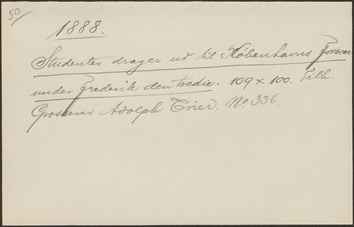 50
1888.
Studenter drager ud til Københavns Forsvar
under Frederik den tredie. 109 x 100. Tilh.
Grosserer Adolph Trier. No 336.